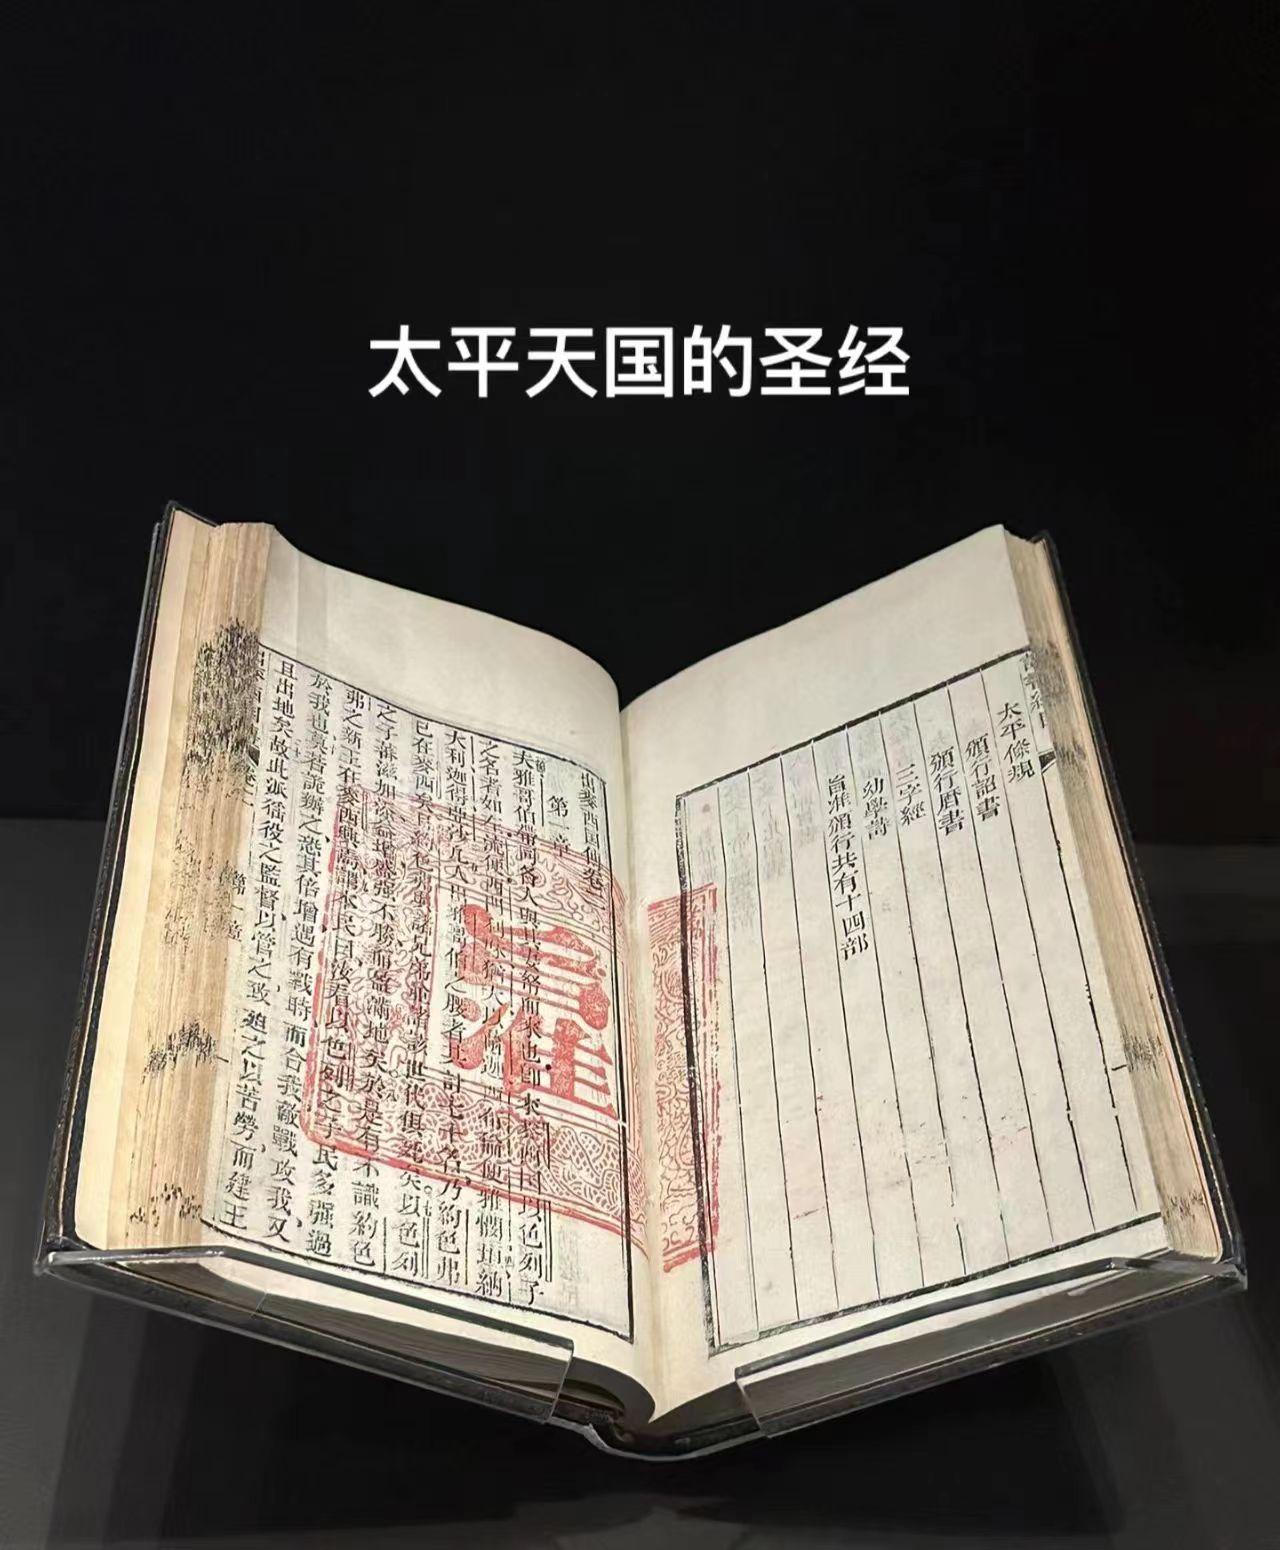 太平天国的圣经
太平條規
頒行詔書
頒行厯書
三字經
幼學詩
旨准頒行共有十四部
旨准
出麥西國傳卷
第一章
夫雅哥伯帶同各人與其妻帑而來也即來麥西國以色列子
之名者如左流便西面利未猶大以薩西布倫便雅憫但納
大利迦得亞沙凡人由雅哥伯之腰者其計七十名乃約色弗
已在麥西矣約色弗與諸兄弟世代俱死矣以色列
之子葉滋加不勝而盛滿地矣於是有不識約色
弗之新主在麥西興焉謂本民曰汝看以色列之子民多强過
於我也莫若詭辦之恐其倍增遇有戰時而合我敵戰攻我又
且出地矣故此派督役之監督以管之致廹之以苦勞而建王